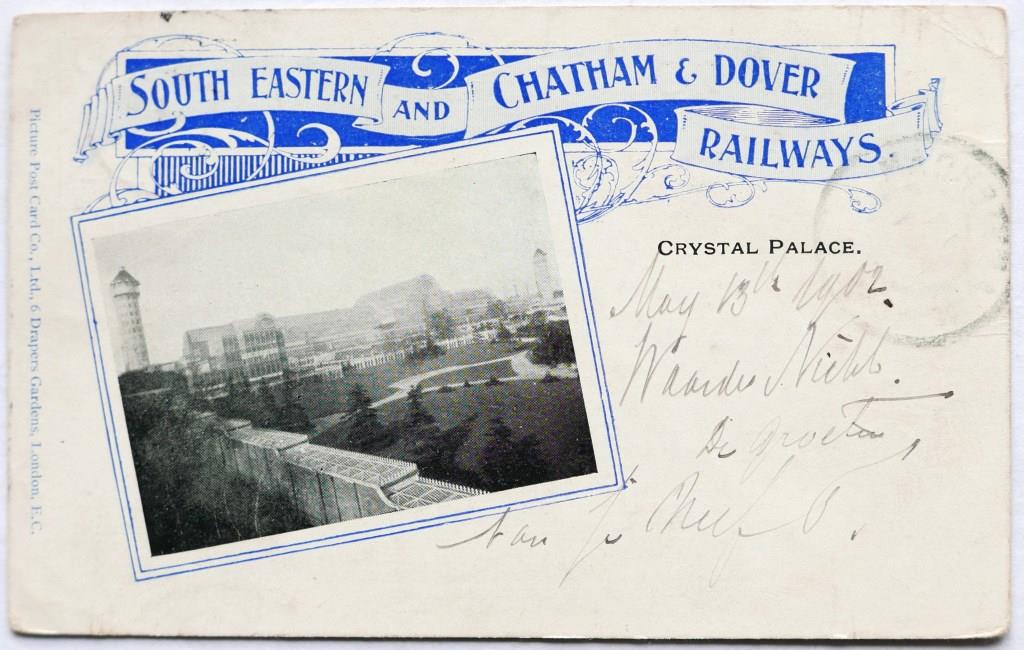 SOUTH EASTERN AND CHATHAM & DOVER RAILWAYS
CRYSTAL PALACE.
May 13th 1902.
Waarde
De groeten
van
Picture Post Card Co., Ltd., 6 Drapers Gardens, London, E.C.